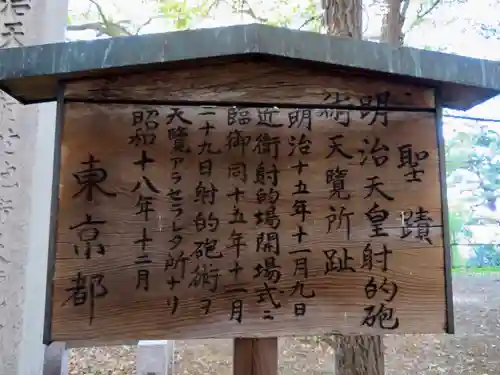 聖蹟
明治天皇射的砲
術天覧所趾
明治十五年十一月九日
近衛射的場開場式ニ
臨御同十五年十一月
二十九日射的砲術ヲ
天覧アラセラレタ所ナリ
昭和十八年十二月
東京都